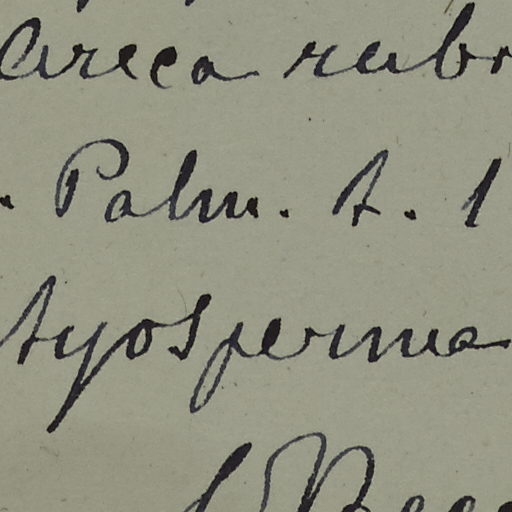 Areca rubr
. Palm. t. 1
tyosperma
Becc